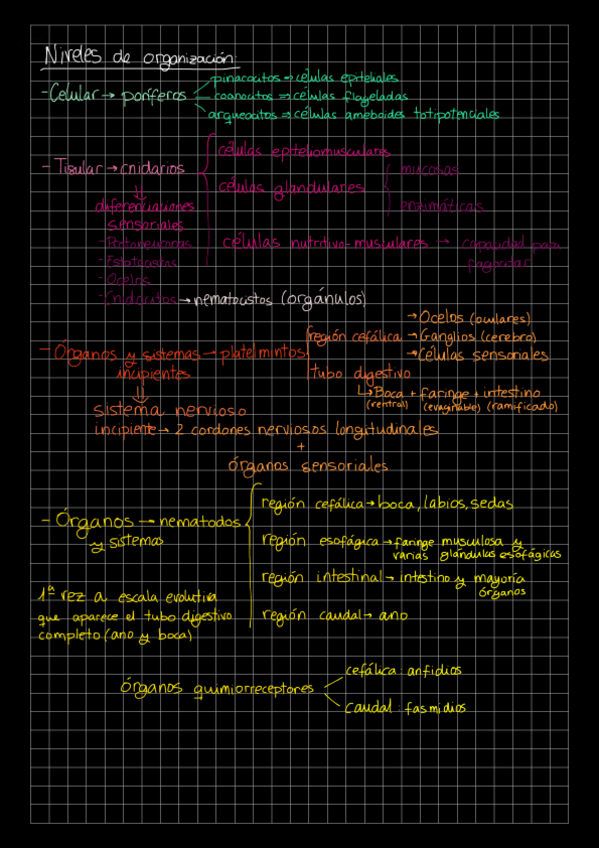 Niveles de organización
- Celular → poríferos
pinacocitos ⇒ células epiteliales
coanocitos ⇒ células flageladas
arqueocitos ⇒ células ameboides totipotenciales
- Tisular → cnidarios
células epiteliomusculares
células glandulares
mucosas
enzimáticas
células nutritivo-musculares → capacidad para
fagocitar
diferenciaciones
sensoriales
- Protoneuronas
- Estatocistos
- Ocelos
- Cnidocitos → nematocistos (orgánulos)
- Órganos y sistemas → platelmintos
incipientes
región cefálica
→ Ocelos (oculares)
→ Ganglios (cerebro)
→ Células sensoriales
tubo digestivo
↳ Boca + faringe + intestino
(ventral) (evaginable) (ramificado)
sistema nervioso
incipiente → 2 cordones nerviosos longitudinales
+
órganos sensoriales
- Órganos → nematodos
y sistemas
región cefálica → boca, labios, sedas
región esofágica → faringe musculosa y
varias glándulas esofágicas
región intestinal → intestino y mayoría
órganos
región caudal → ano
1ª vez a escala evolutiva
que aparece el tubo digestivo
completo (ano y boca)
órganos quimiorreceptores
cefálica: anfidios
caudal: fasmidios